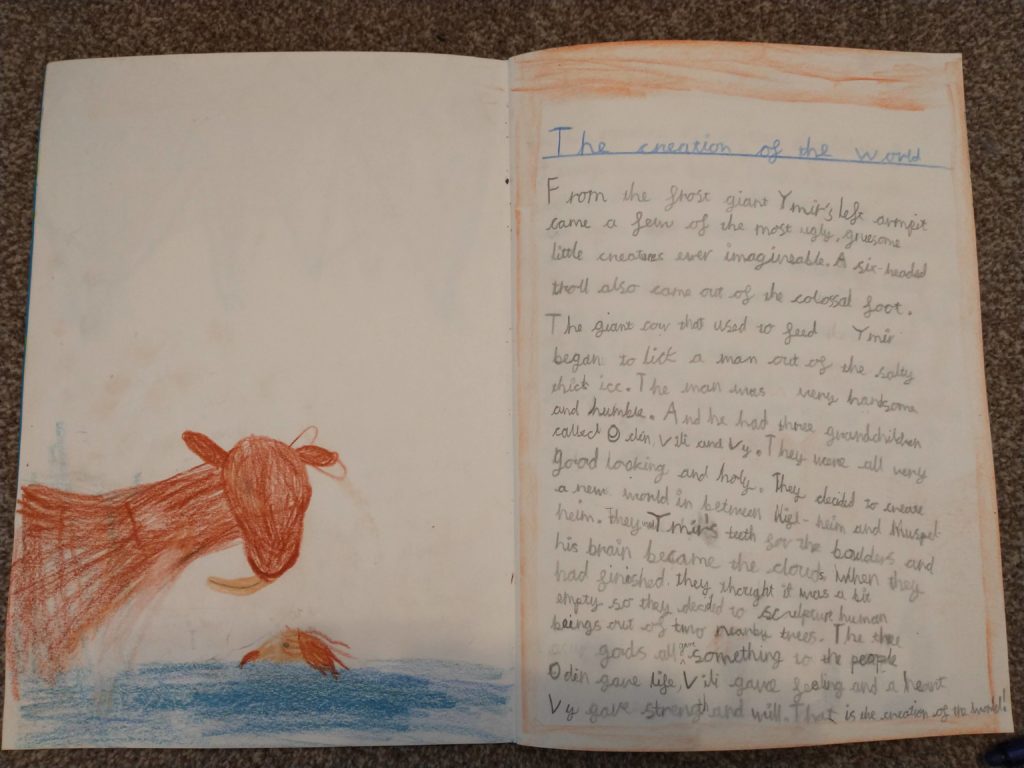 The creation of the world
From the frost giant Ymir's left armpit
came a few of the most ugly, gruesome
little creatures ever imagineable. A six-headed
troll also came out of the colossal foot.
The giant cow that used to feed Ymir
began to lick a man out of the salty
thick ice. The man was very handsome
and humble. And he had three grandchildren
called Odin, Vili and Vy. They were all very
good looking and holy. They decided to create
a new world in between Nigl-heim and Muspel-
heim. They used Ymir's teeth for the boulders and
his brain became the clouds. When they
had finished. they thought it was a bit
empty so they decided to sculpture human
beings out of two nearby trees. The three
gods all gave something to the people
Odin gave life, Vili gave feeling and a heart
Vy gave strength and will. That is the creation of the world!